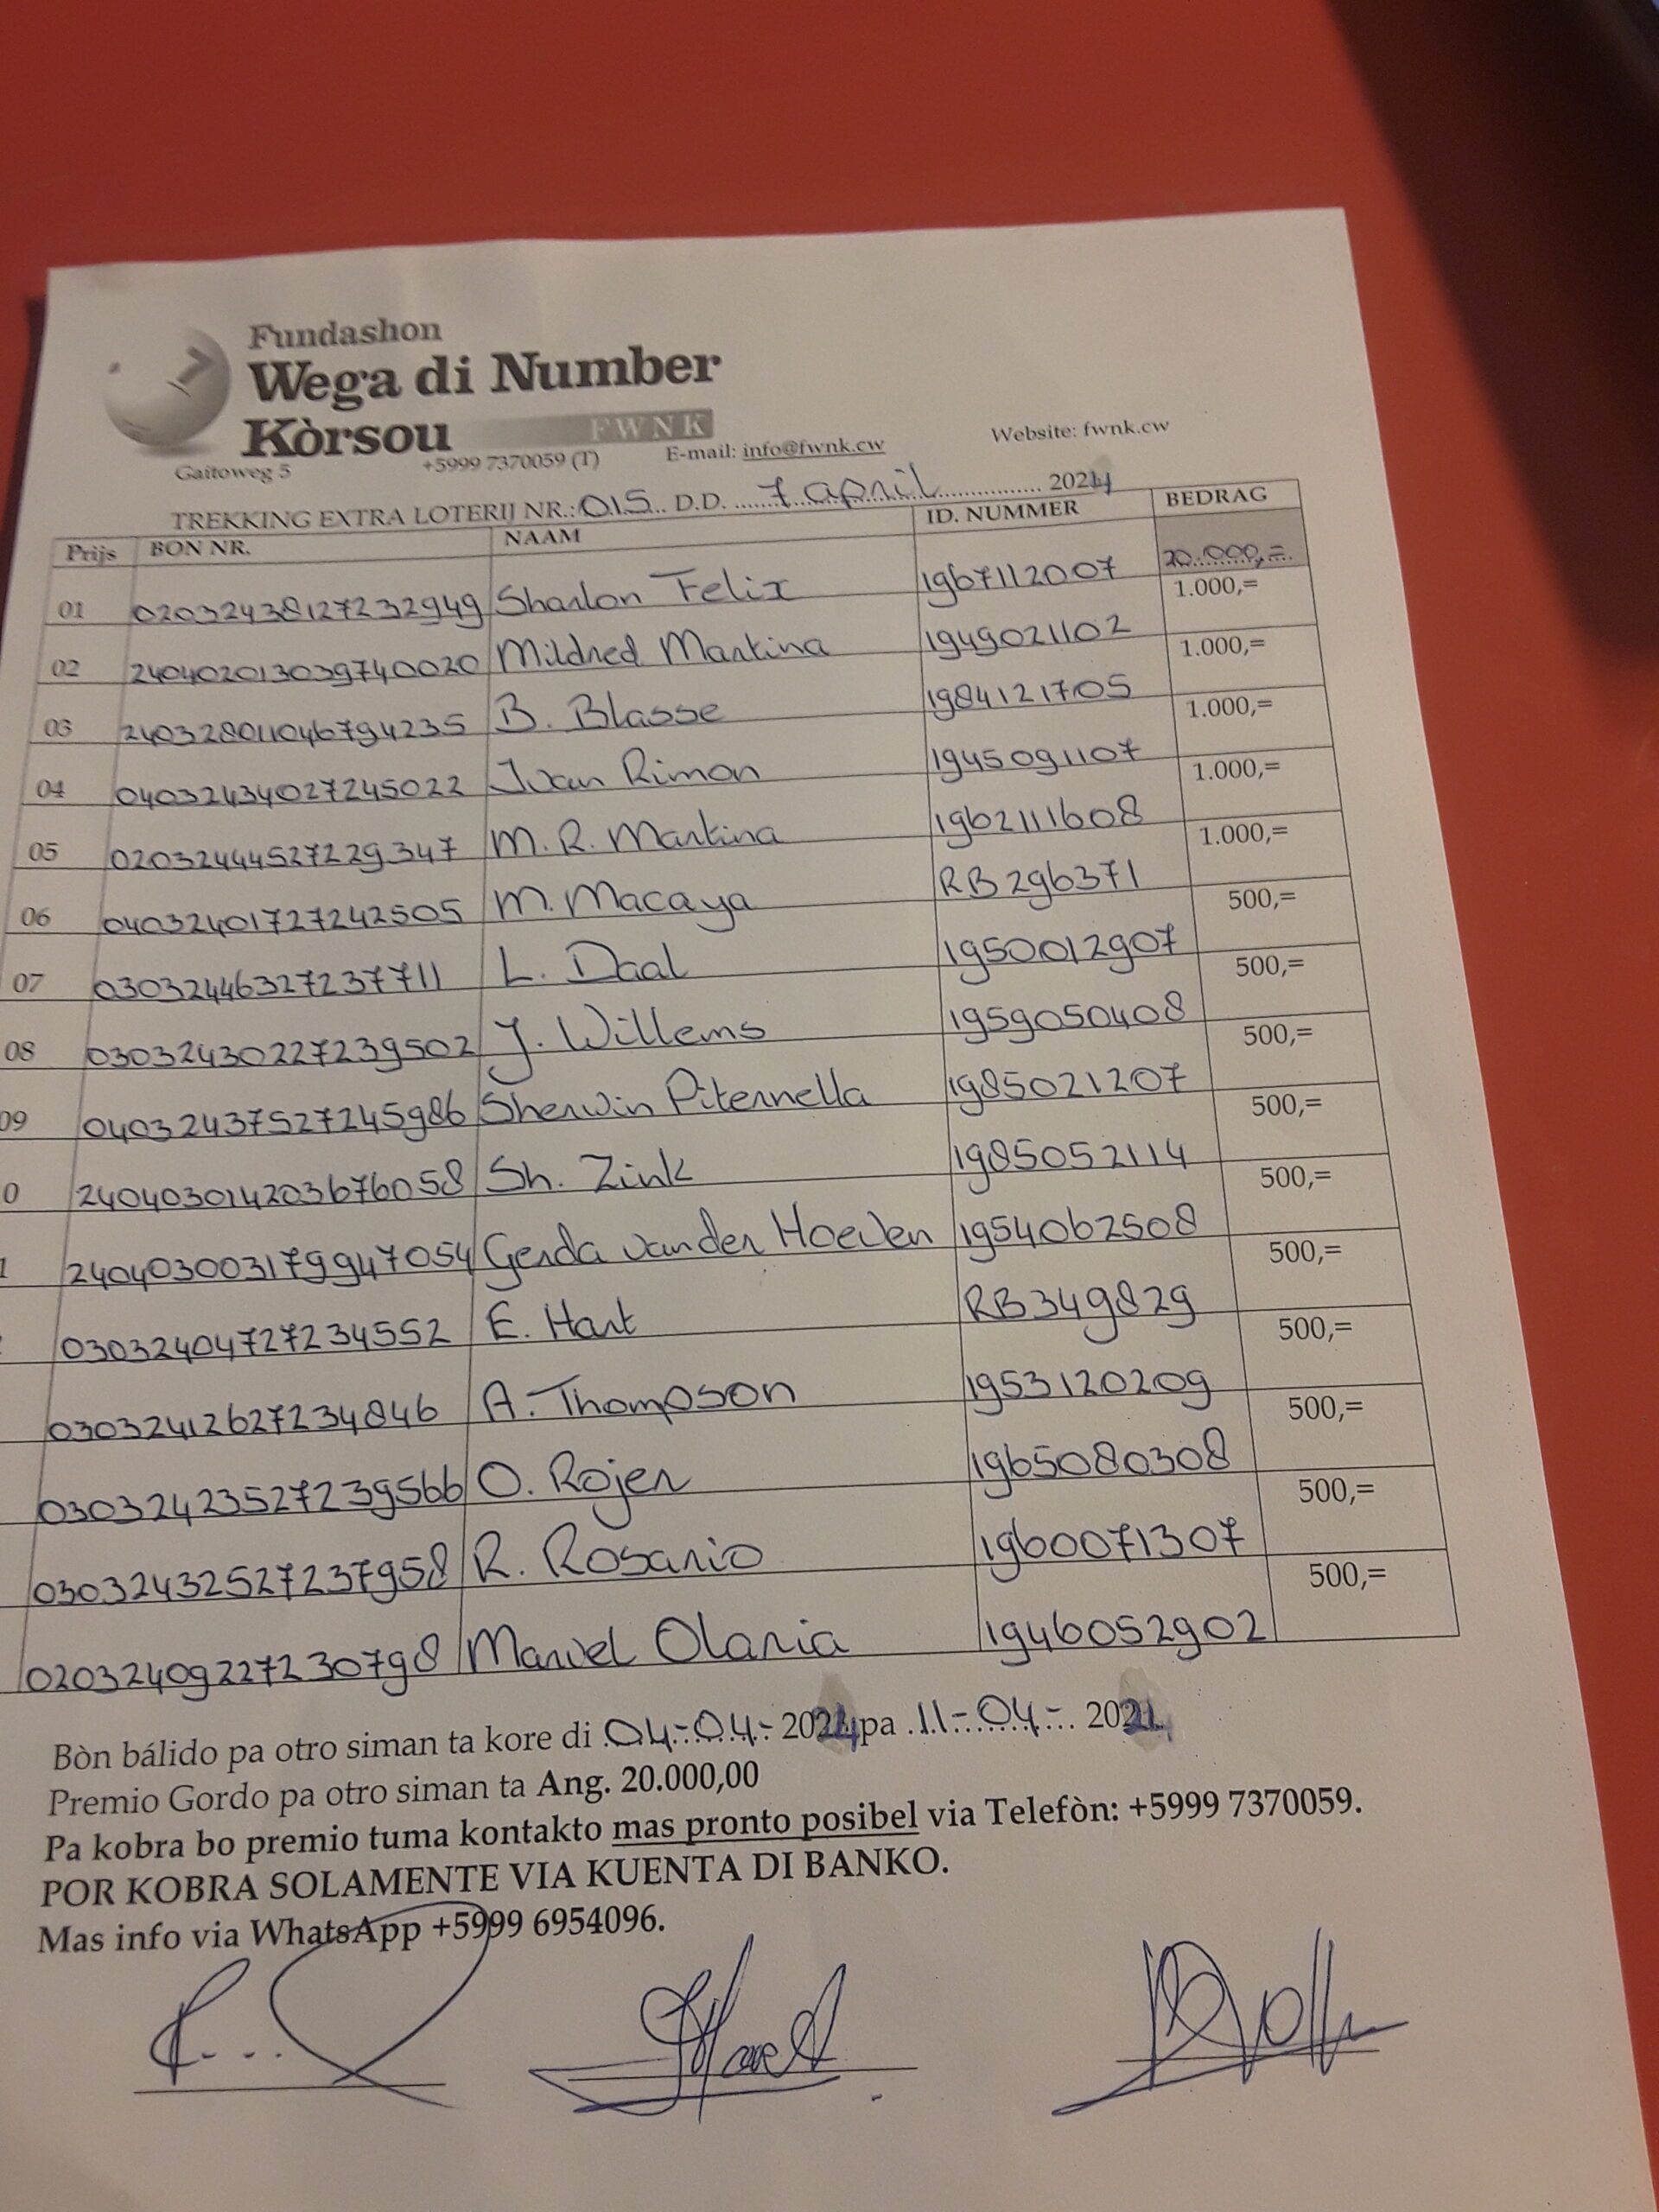 Fundashon
Wega di Number
Kòrsou FWNK
Gaitoweg 5 +5999 7370059 (T) E-mail: info@fwnk.cw Website: fwnk.cw
TREKKING EXTRA LOTERIJ NR.: 015 D.D. 7 april 2024
Prijs BON NR. NAAM ID. NUMMER BEDRAG
01 02032438127232949 Sharlon Felix 1967112007 20.000,=
02 240402013039740020 Mildred Martina 1949021102 1.000,=
03 240328011046794235 B. Blasse 1984121705 1.000,=
04 04032434027245022 Ivan Rimon 1945091107 1.000,=
05 02032444527229347 M.R. Martina 1962111608 1.000,=
06 04032401727242505 M. Macaya RB296371 1.000,=
07 03032446327237711 L. Daal 1950012907 500,=
08 03032430227239502 J. Willems 1959050408 500,=
09 04032437527245986 Sherwin Piternella 1985021207 500,=
0 240403014203676058 Sh. Zink 1985052114 500,=
1 240403003179947054 Gerda van der Hoeven 1954062508 500,=
03032404727234552 E. Hart RB349829 500,=
03032412627234846 A. Thompson 1953120209 500,=
03032423527239566 O. Rojer 1965080308 500,=
03032432527237958 R. Rosario 1960071307 500,=
02032409227230798 Manuel Olaria 1946052902 500,=
Bòn bálido pa otro siman ta kore di 04-04- 2024 pa 11-04- 2024
Premio Gordo pa otro siman ta Ang. 20.000,00
Pa kobra bo premio tuma kontakto mas pronto posibel via Telefòn: +5999 7370059.
POR KOBRA SOLAMENTE VIA KUENTA DI BANKO.
Mas info via WhatsApp +5999 6954096.